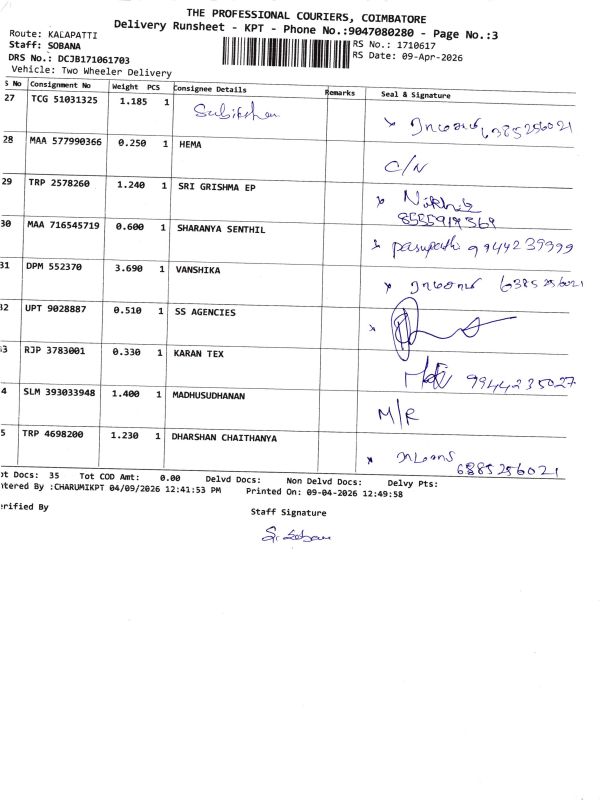 THE PROFESSIONAL COURIERS, COIMBATORE
Delivery Runsheet - KPT - Phone No.:9047080280 - Page No.:3
Route: KALAPATTI
RS No.: 1710617
Staff: SOBANA
RS Date: 09-Apr-2026
DRS No.: DCJB171061703
Vehicle: Two Wheeler Delivery
S No Consignment No Weight PCS Consignee Details Remarks Seal & Signature
27 TCG 51031325 1.185 1 6385256021
28 MAA 577990366 0.250 1 HEMA C/N
29 TRP 2578260 1.240 1 SRI GRISHMA EP
30 MAA 716545719 0.600 1 SHARANYA SENTHIL pasupathi 9944239999
31 DPM 552370 3.690 1 VANSHIKA 6385256021
32 UPT 9028887 0.510 1 SS AGENCIES
33 RJP 3783001 0.330 1 KARAN TEX 9944235027
4 SLM 393033948 1.400 1 MADHUSUDHANAN M/R
5 TRP 4698200 1.230 1 DHARSHAN CHAITHANYA
ot Docs: 35 Tot COD Amt: 0.00 Delvd Docs: Non Delvd Docs: Delvy Pts:
ntered By :CHARUMIKPT 04/09/2026 12:41:53 PM Printed On: 09-04-2026 12:49:58
erified By
Staff Signature